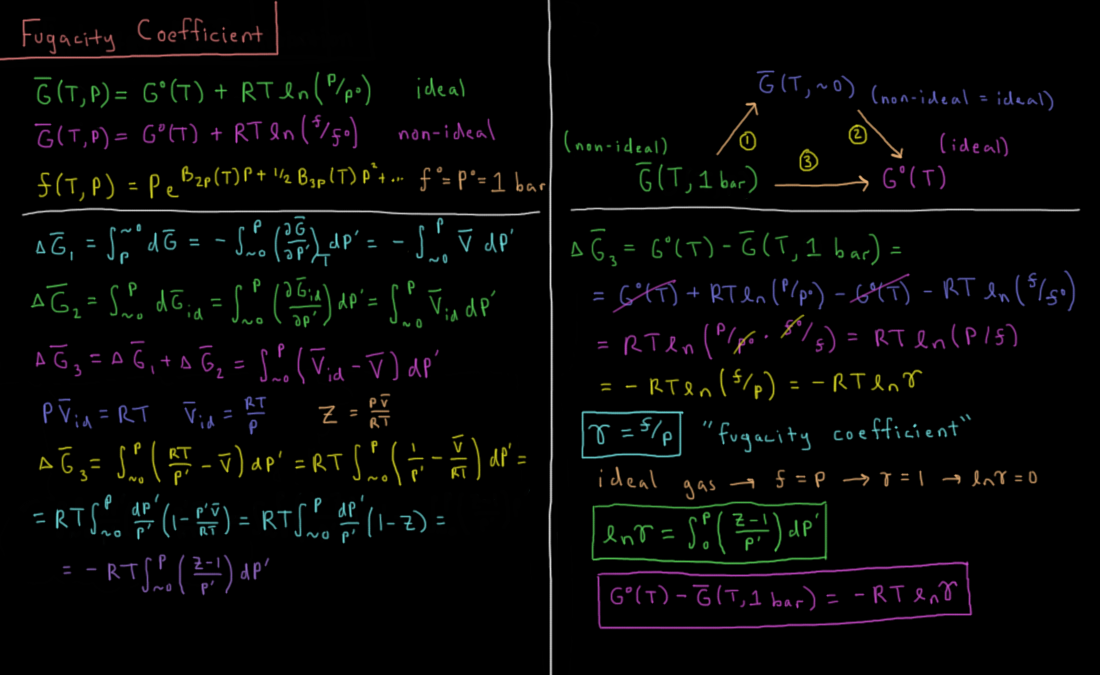 Fugacity Coefficient
G̅(T,P) = G°(T) + RT ln(P/P°) ideal
G̅(T,P) = G°(T) + RT ln(f/f°) non-ideal
f(T,P) = P e^(B₂ₚ(T)P + 1/2 B₃ₚ(T)P² + ...) f° = P° = 1 bar
ΔG̅₁ = ∫_P^~0 dG̅ = - ∫_~0^P (∂G̅/∂P')_T dP' = - ∫_~0^P V̅ dP'
ΔG̅₂ = ∫_~0^P dG̅_id = ∫_~0^P (∂G̅_id/∂P') dP' = ∫_~0^P V̅_id dP'
ΔG̅₃ = ΔG̅₁ + ΔG̅₂ = ∫_~0^P (V̅_id - V̅) dP'
PV̅_id = RT V̅_id = RT/P Z = PV̅/RT
ΔG̅₃ = ∫_~0^P (RT/P' - V̅) dP' = RT ∫_~0^P (1/P' - V̅/RT) dP' =
= RT ∫_~0^P dP'/P' (1 - P'V̅/RT) = RT ∫_~0^P dP'/P' (1-Z) =
= - RT ∫_~0^P (Z-1/P') dP'
G̅(T,~0) (non-ideal = ideal)
① ②
(non-ideal) ③ (ideal)
G̅(T,1 bar) → G°(T)
ΔG̅₃ = G°(T) - G̅(T,1 bar) =
= G°(T) + RT ln(P/P°) - G°(T) - RT ln(f/f°)
= RT ln(P/P° · f°/f) = RT ln(P/f)
= - RT ln(f/P) = - RT ln γ
γ = f/P "fugacity coefficient"
ideal gas → f = P → γ = 1 → ln γ = 0
ln γ = ∫_0^P (Z-1/P') dP'
G°(T) - G̅(T,1 bar) = - RT ln γ